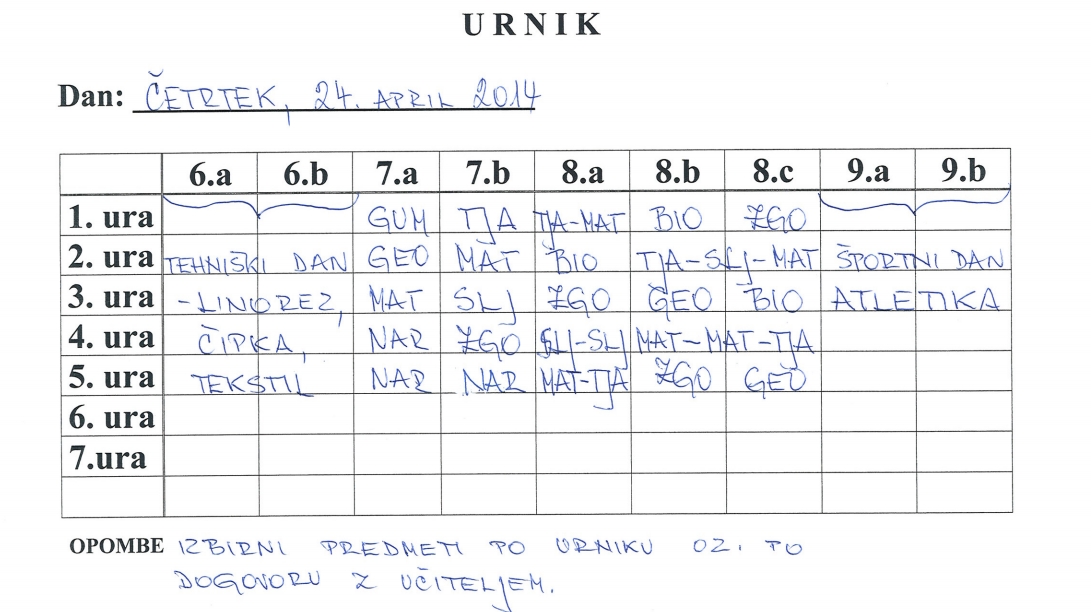 URNIK
Dan: ČETRTEK, 24. APRIL 2014
6.a 6.b 7.a 7.b 8.a 8.b 8.c 9.a 9.b
1. ura GUM TJA TJA-MAT BIO ZGO
2. ura TEHNIŠKI DAN GEO MAT BIO TJA-SLJ-MAT ŠPORTNI DAN
3. ura -LINOREZ, MAT SLJ ZGO GEO BIO ATLETIKA
4. ura ČIPKA, NAR ZGO SLJ-SLJ MAT-MAT-TJA
5. ura TEKSTIL NAR NAR MAT-TJA ZGO GEO
6. ura
7.ura
OPOMBE IZBIRNI PREDMETI PO URNIKU OZ. PO
DOGOVORU Z UČITELJEM.